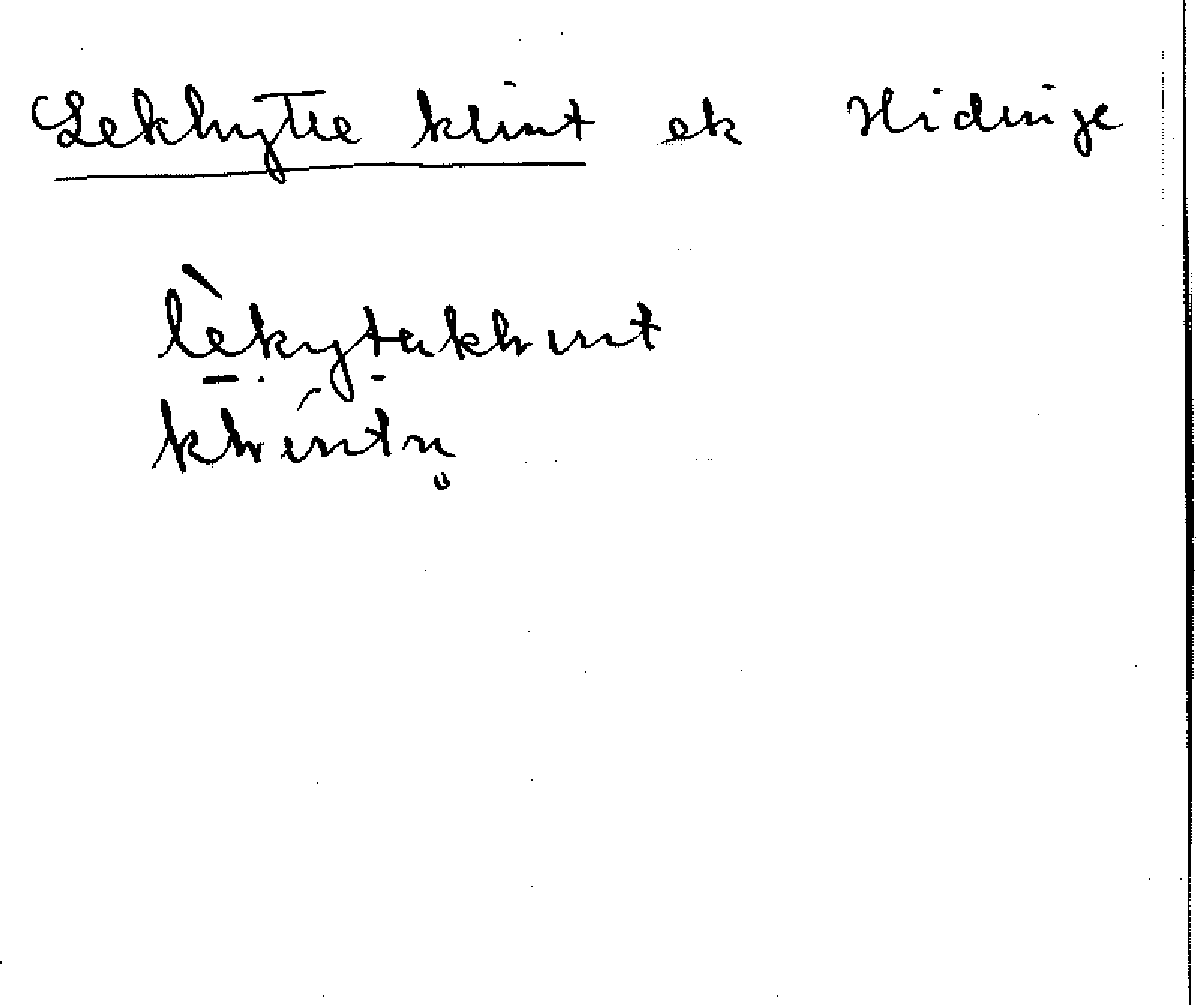 Lekhytte klint ek Hidinge
lèkytaklint
klintn̥